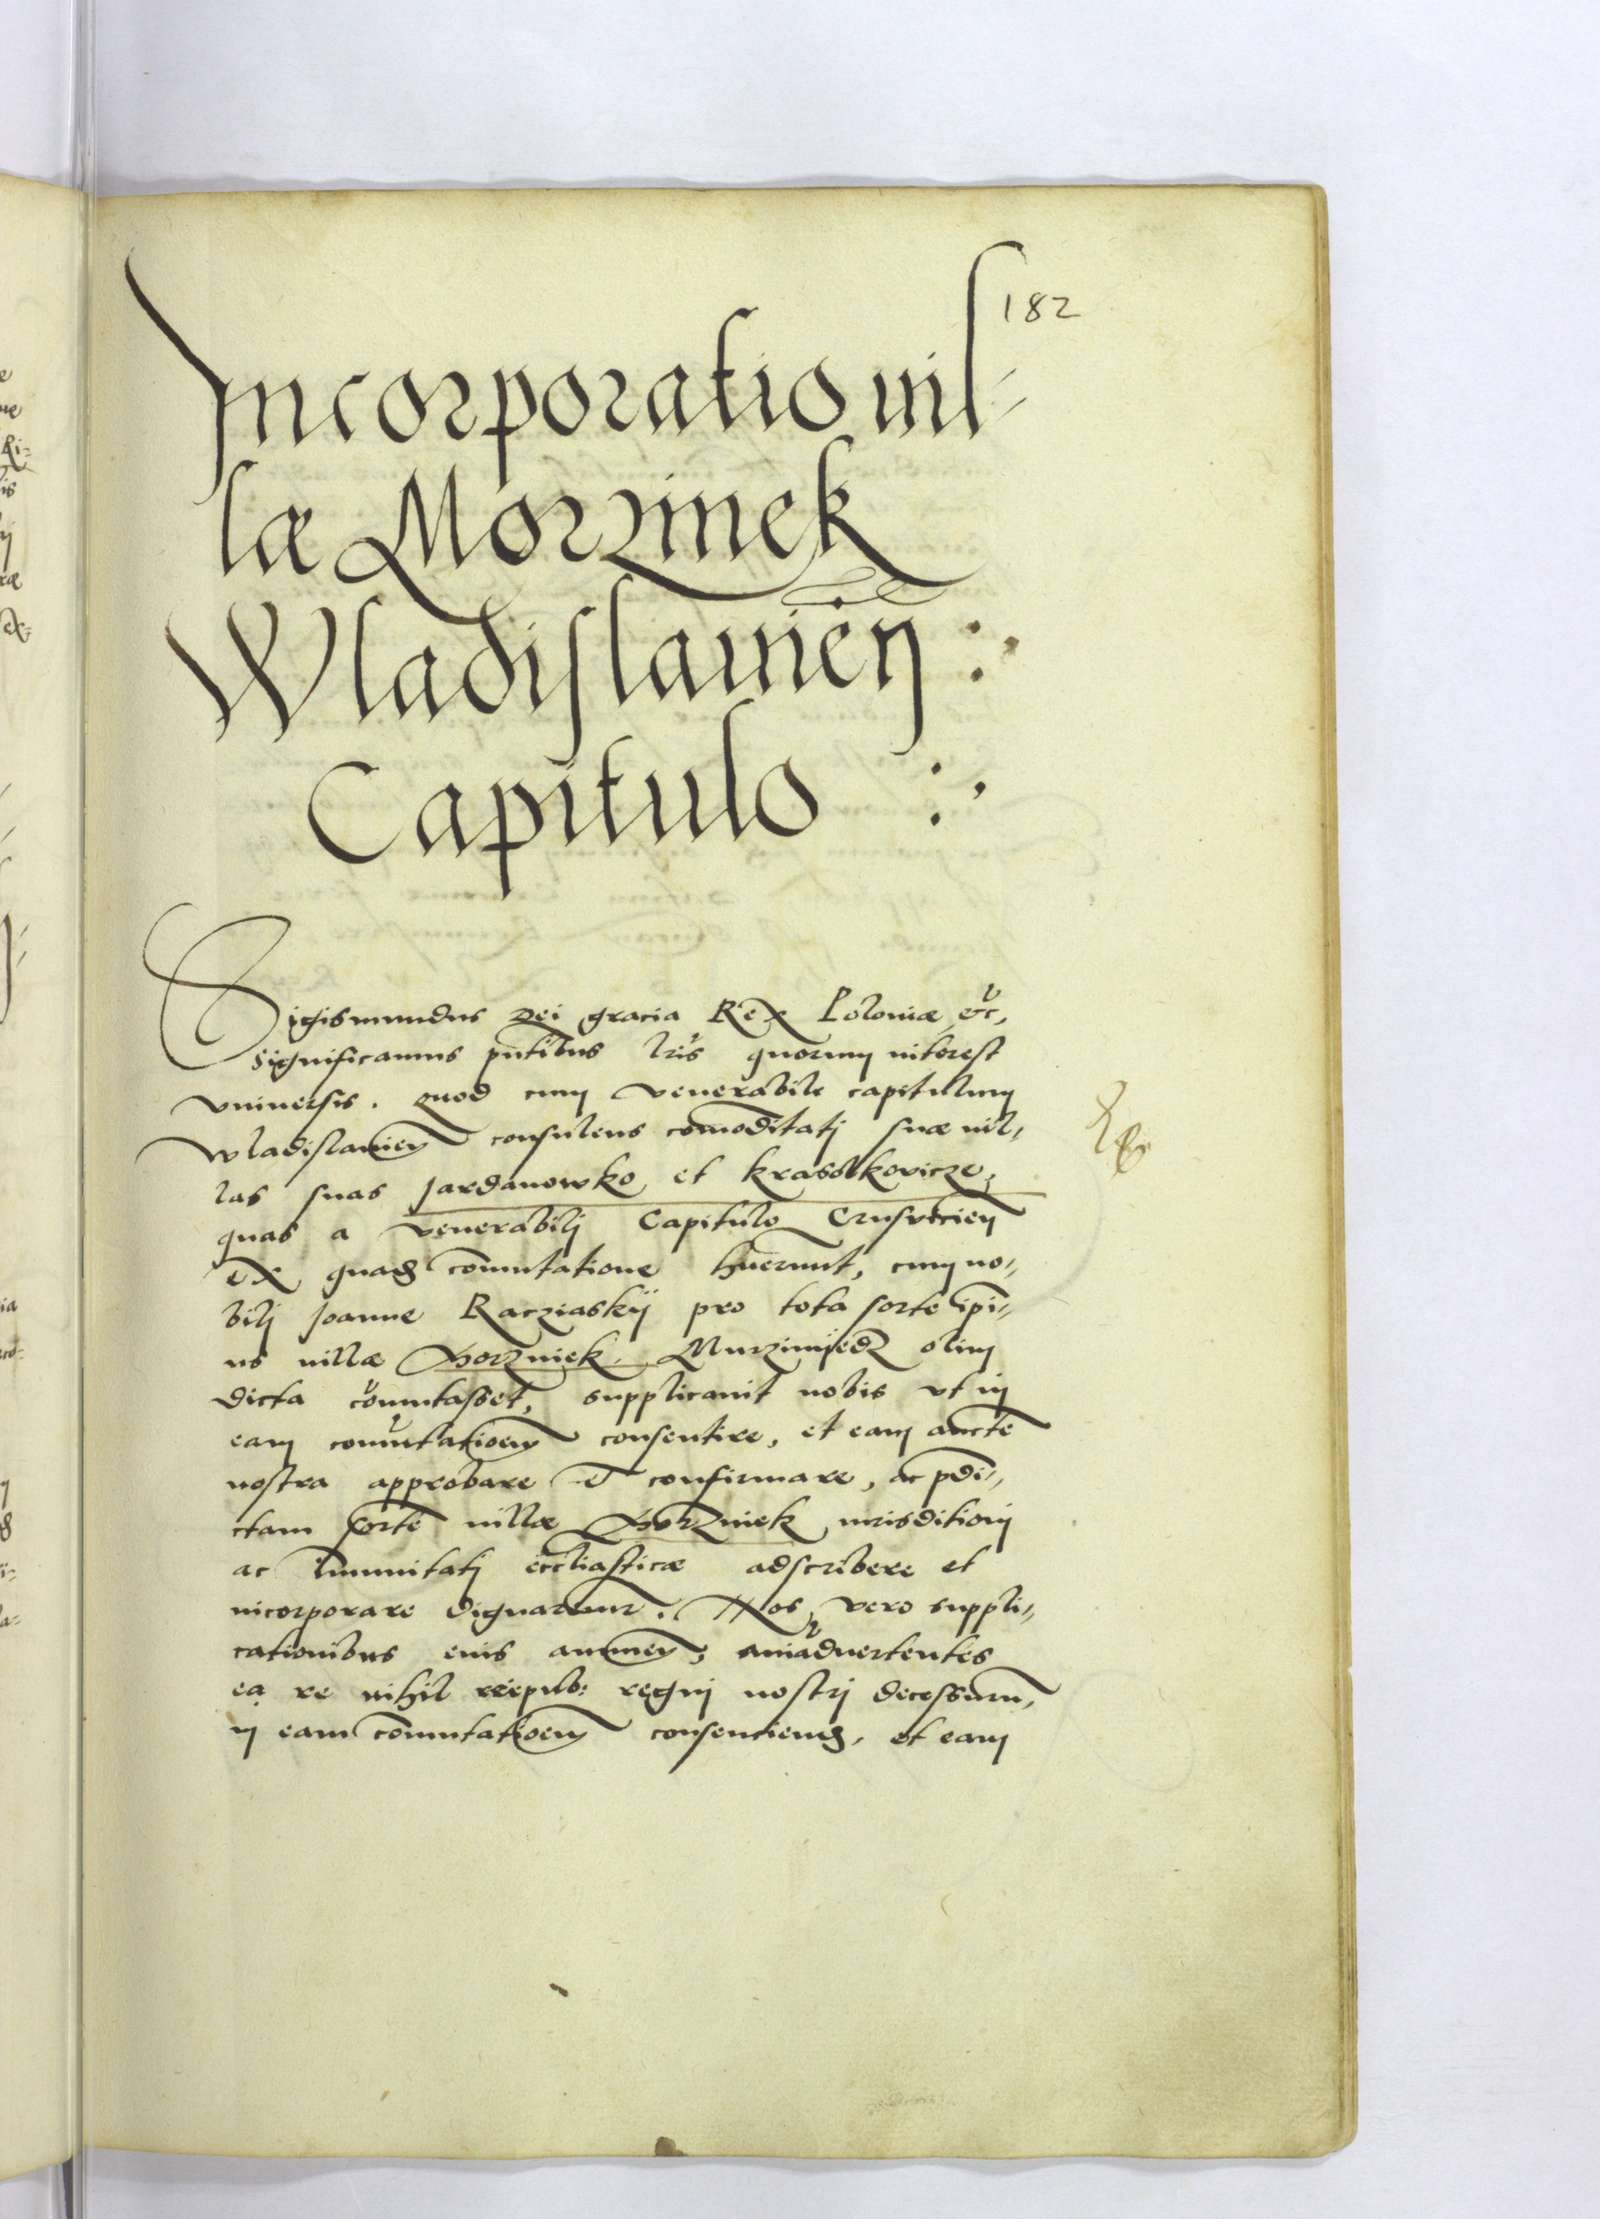 182
Incorporatio vil-
læ Morzinek
Wladislauien̄ :,
Capitulo :,
Sigismundus Dei gracia Rex Poloniæ etc̄,
significamus pn̄tibus lr̄is quorum interest
vniuersis. quod cum venerabile capitulum
Wladislauien̄ consulens comoditatj suæ vil,,
las suas Jardanowko et krasslkovicze,
quas a venerabilj Capitulo Crusvicien̄
ex quad commutatione hūerunt, cum no,,
bilj Joanne Racziaskij pro tota sorte ipi,,
us villæ Gorzniek Murzinijedz olim
dicta cōmutasset, supplicauit nobis vt in
eam com̄utatioem̄ consentire, et eam aucte
nostra approbare et confirmare, ac pdi,,
ctam sortē villæ Gorzniek iurisditionj
ac Immunitatj ecclīasticæ adscribere et
incorporare dignaremur. Nos vero suppli,,
cationibus eius annuen̄, aniaduertentes
ea re nihil reipub: regnj nostrj decessurū,
in eam commutatioem̄ consenciend, et eam